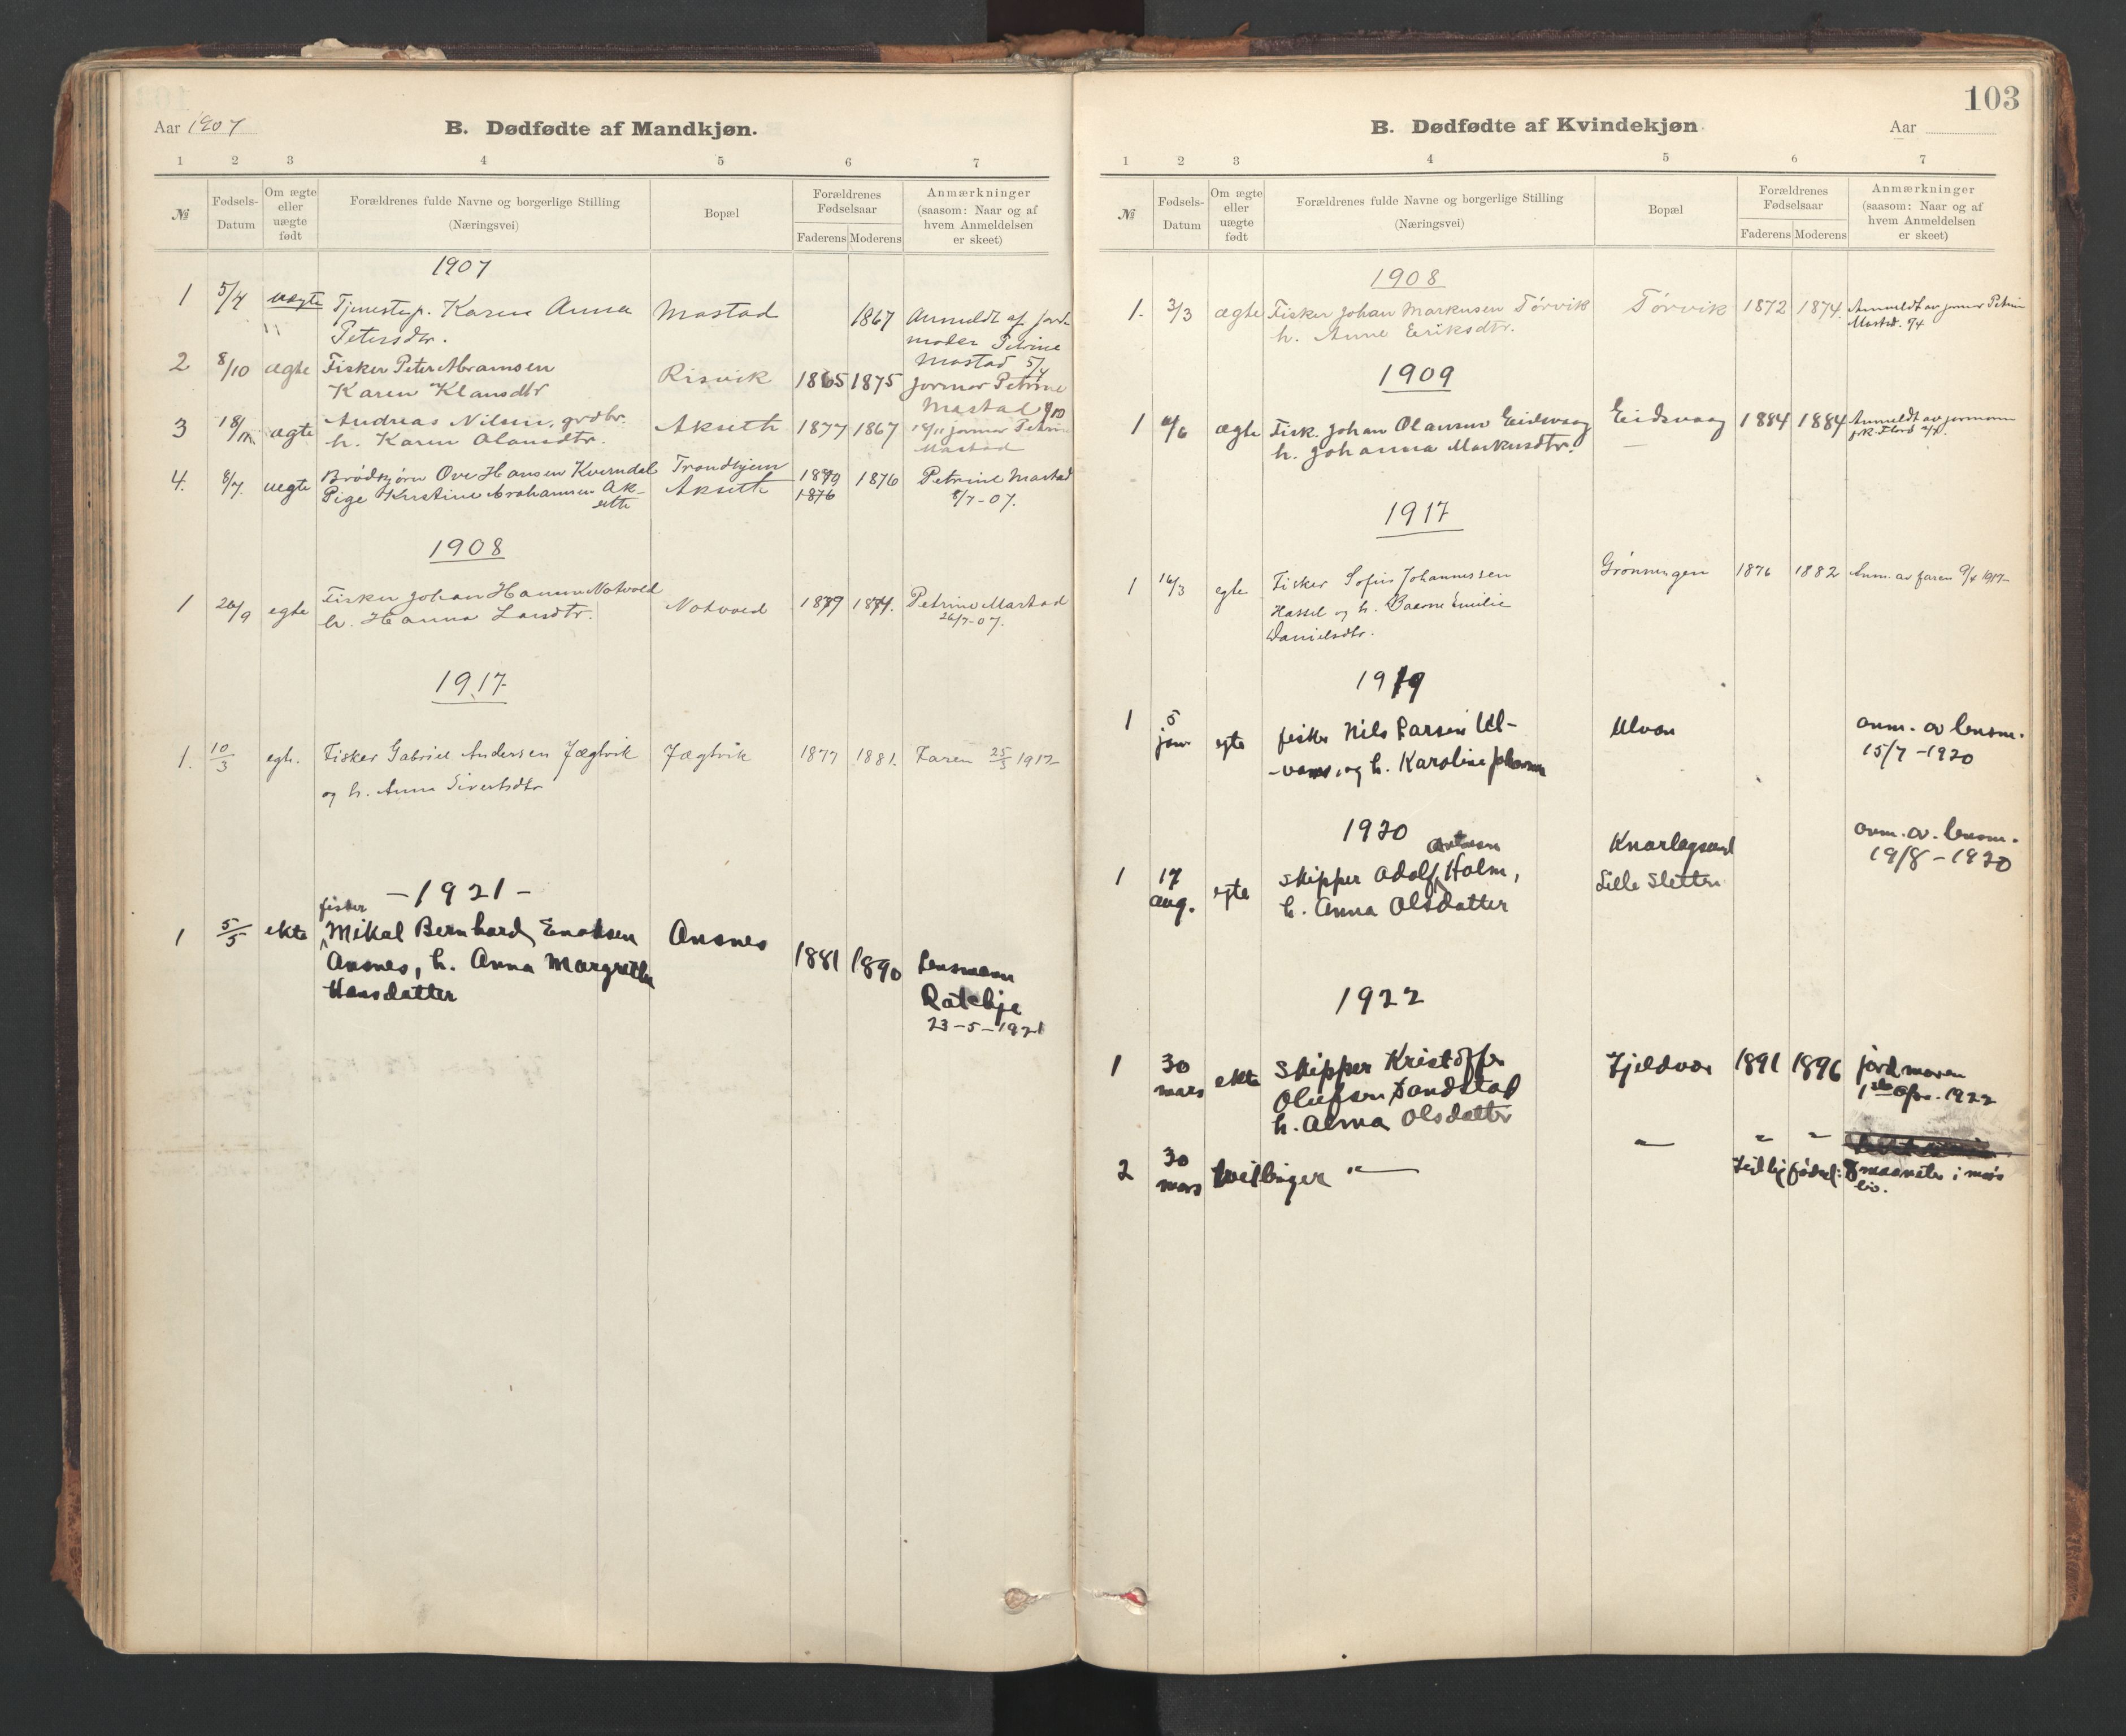 Aar 1907
B. Dødfødte af Mandkjøn.
1 2 3 4 5 6 7
№
Fødsels-
Datum
Om ægte
eller
uægte
født
Forældrenes fulde Navne og borgerlige Stilling
(Næringsvei)
Bopæl
Forældrenes
Fødselsaar
Faderens Moderens
Anmærkninger
(saasom: Naar og af
hvem Anmeldelsen
er skeet)
1907
1 5/4 uegte Tjenestep. Karen Anna Mastad 1867 Anmeldt af jord-
Petersdtr. moder Petrine
Mastad 5/4
2 8/10 ægte Fisker Peter Abramsen Risvik 1865 1875 jormor Petrine
Karen Klausdtr Mastad 8/10
3 18/11 ægte Andreas Nilsen, grdbr. Akseth 1877 1867 18/11 jormor Petrine
h. Karen Olausdtr. Mastad
4. 8/7. uegte Brødkjører Ove Hansen Kverndal Trondhjem 1879 1876 Petrine Mastad
Pige Kristine Abrahamsen Ak- Akseth 1876 8/7-07.
seth
1908
1 26/9 egte Fisker Johan Hansen Notvold Notvold 1879 1874. Petrine Mastad
h. Hanna Larsdtr. 26/7-07.
1917
1. 10/3 egte. Fisker Gabriel Andersen Jægtvik Jægtvik 1877 1881. Faren 25/3 1917
og h. Anna Sivertsdtr
-1921-
fisker
1 5/5 ekte Mikal Bernhard Enoksen Ansnes 1881 1890 Lensmann
Ansnes, h. Anna Margrethe
Hansdatter 23-5-1921
103
B. Dødfødte af Kvindekjøn
Aar
1 2 3 4 5 6 7
№
Fødsels-
Datum
Om ægte
eller
uægte
født
Forældrenes fulde Navne og borgerlige Stilling
(Næringsvei)
Bopæl
Forældrenes
Fødselsaar
Faderens Moderens
Anmærkninger
(saasom: Naar og af
hvem Anmeldelsen
er skeet)
1908
1. 3/3 ægte Fisker Johan Markusen Tørvik Tørvik 1872 1874. Anmeldt av jormor Petrine
h. Anne Eriksdtr. Mastad.
1909
1 ægte Fisk. Johan Olausen Eidsvaag Eidsvaag 1884 1884 Anmeldt av jormoren
h. Johanna Markusdtr.
1917
1 16/3 egte Fisker Sofus Johannessen Grønningen 1876 1882 Anm. av faren 9/4 1917
Hassel og h. Emilie
Danielsdtr.
1919
1 5 jan egte fisker Nils Larsen Ul- Ulvan anm. av lensm.
-vans, og h. Karoline 15/7-1920
1920
1 17 aug. egte skipper Adolf Holm, Knarlagsund anm. av. lensm.
h. Anna Olsdatter Lille Sletten 19/8-1920
1922
1 30 mars ekte Skipper Kristoffer Fjeldvær 1891 1896 jordmoren
Olufsen Sandstad 1ste apr. 1922
h. Alma Olsdatter
2 30 mars tvillinger "— " " "
Feillig fødsel: 8 maaneder i mors
liv.